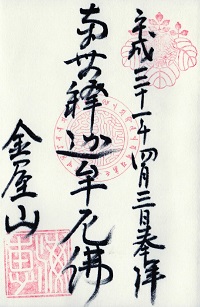 平成三十一年四月三日奉拝
南無釋迦牟尼佛
金屋山